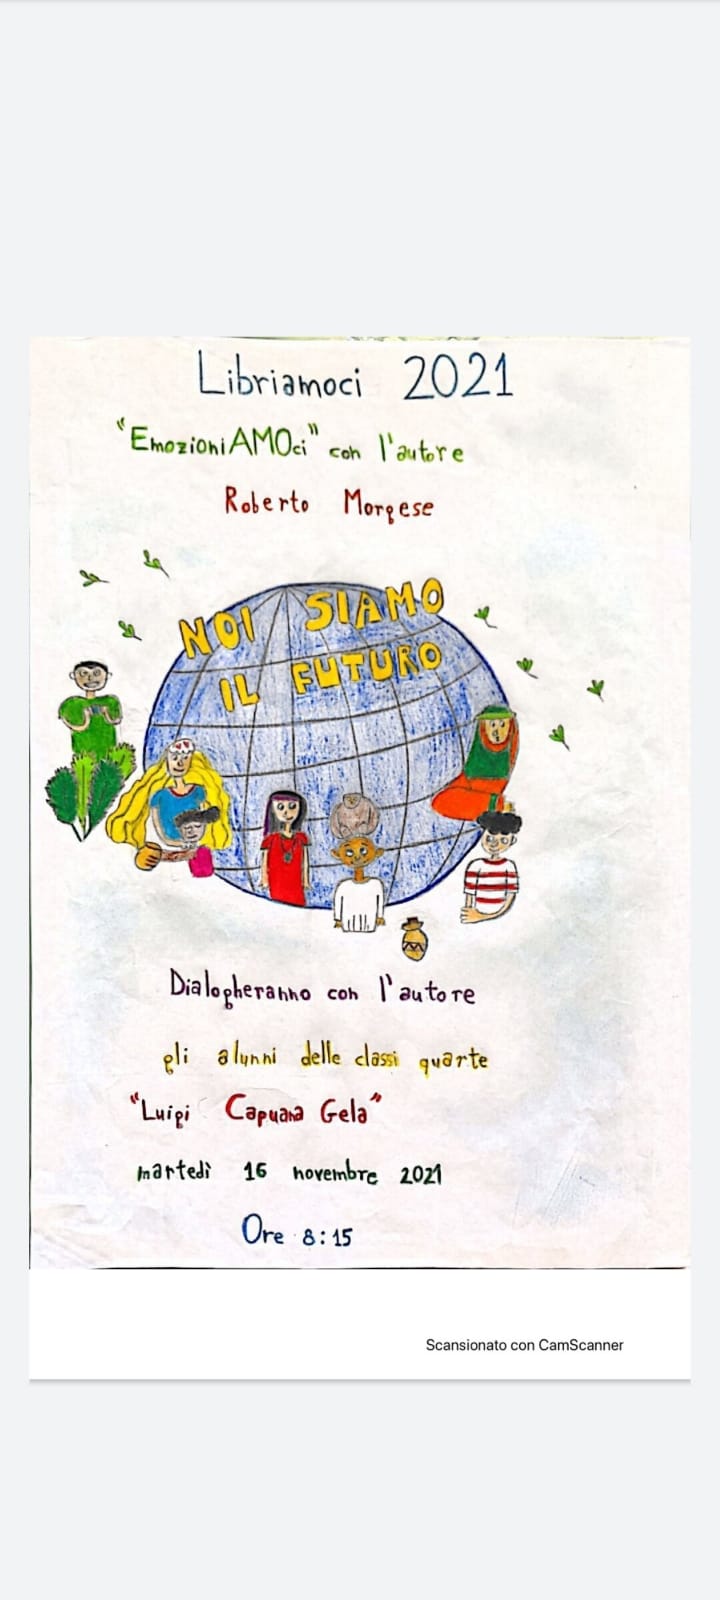 Libriamoci 2021
"EmozioniAMOci" con l'autore
Roberto Morgese
NOI SIAMO
IL FUTURO
Dialogheranno con l'autore
gli alunni delle classi quarte
"Luigi Capuana Gela"
martedì 16 novembre 2021
Ore 8:15
Scansionato con CamScanner